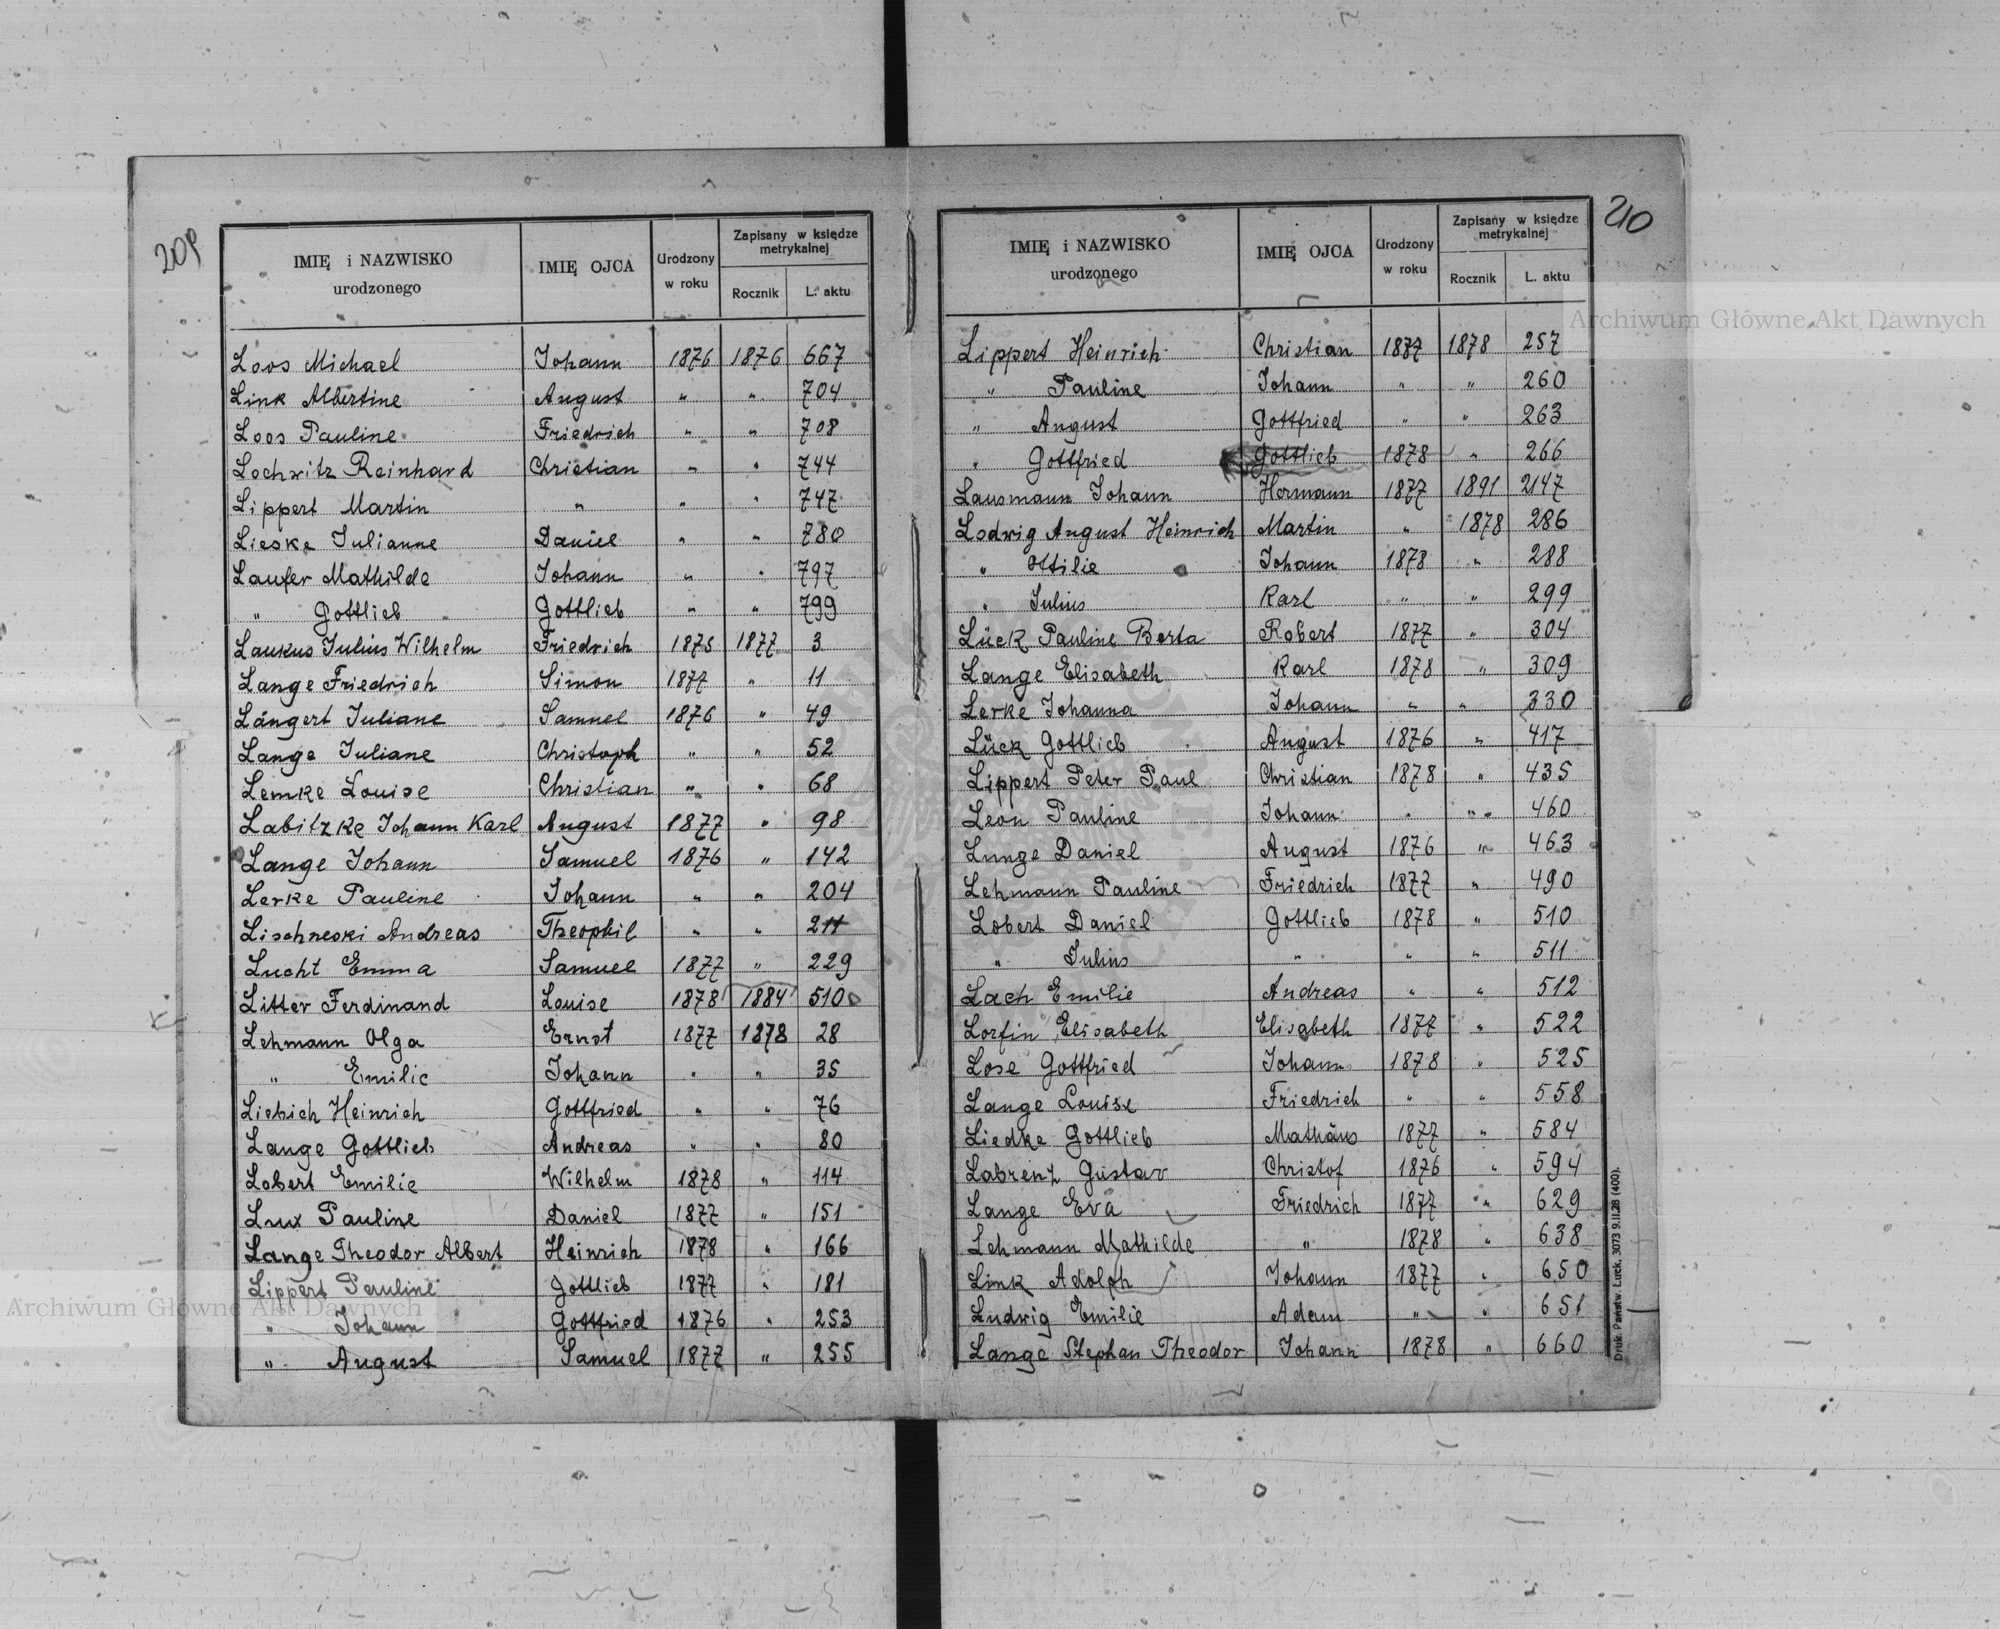 209
IMIĘ i NAZWISKO urodzonego | IMIĘ OJCA | Urodzony w roku | Zapisany w księdze metrykalnej
Rocznik | L. aktu
Loos Michael Johann 1876 1876 667
Link Albertine August " " 704
Loos Pauline Friedrich " " 708
Lochwitz Reinhard Christian " " 744
Lippert Martin " " " 747
Lieske Julianne Daniel " " 780
Laufer Mathilde Johann " " 797
" Gottlieb Gottlieb " " 799
Laukus Julius Wilhelm Friedrich 1875 1877 3
Lange Friedrich Simon 1877 " 11
Längert Juliane Samuel 1876 " 49
Lange Juliane Christoph " " 52
Lemke Louise Christian " " 68
Labitzke Johann Karl August 1877 " 98
Lange Johann Samuel 1876 " 142
Lerke Pauline Johann " " 204
Lischneski Andreas Theophil " " 211
Lucht Emma Samuel 1877 " 229
Litter Ferdinand Louise 1878 1884 510
Lehmann Olga Ernst 1877 1878 28
" Emilie Johann " " 35
Liebich Heinrich Gottfried " " 76
Lange Gottlieb Andreas " " 80
Lobert Emilie Wilhelm 1878 " 114
Lux Pauline Daniel 1877 " 151
Lange Theodor Albert Heinrich 1878 " 166
Lippert Pauline Gottlieb 1877 " 181
" Johann Gottfried 1876 " 253
" August Samuel 1877 " 255
210
IMIĘ i NAZWISKO urodzonego | IMIĘ OJCA | Urodzony w roku | Zapisany w księdze metrykalnej
Rocznik | L. aktu
Lippert Heinrich Christian 1877 1878 257
" Pauline Johann " " 260
" August Gottfried " " 263
" Gottfried Gottlieb 1878 " 266
Lausmann Johann Hermann 1877 1891 2147
Lodwig August Heinrich Martin " 1878 286
" Ottilie Johann 1878 " 288
" Julius Karl " " 299
Lück Pauline Berta Robert 1877 " 304
Lange Elisabeth Karl 1878 " 309
Lerke Johanna Johann " " 330
Lück Gottlieb August 1876 " 417
Lippert Peter Paul Christian 1878 " 435
Leon Pauline Johann " " 460
Lunge Daniel August 1876 " 463
Lehmann Pauline Friedrich 1877 " 490
Lobert Daniel Gottlieb 1878 " 510
" Julius " " " 511
Lach Emilie Andreas " " 512
Lorfin Elisabeth Elisabeth 1877 " 522
Lose Gottfried Johann 1878 " 525
Lange Louise Friedrich " " 558
Liedke Gottlieb Mathäus 1877 " 584
Labrenz Gustav Christof 1876 " 594
Lange Eva Friedrich 1877 " 629
Lehmann Mathilde " 1878 " 638
Link Adolph Johann 1877 " 650
Ludwig Emilie Adam " " 651
Lange Stephan Theodor Johann 1878 " 660
Druk. Państw. Łuck. 3073 9.II.28 (400).
Archiwum Główne Akt Dawnych
Archiwum Główne Akt Dawnych